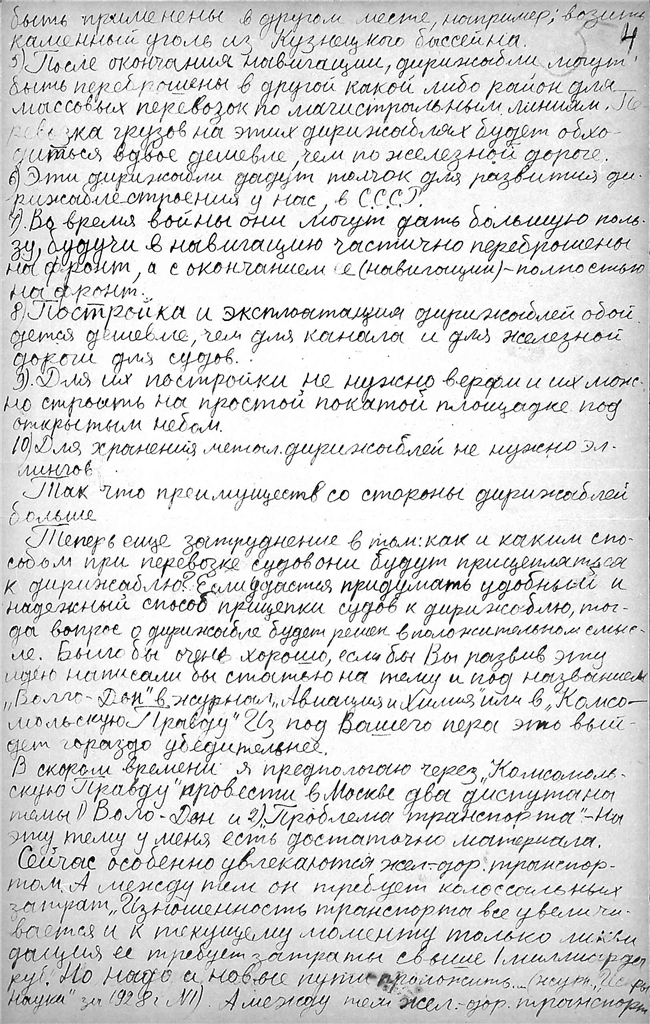 быть применены в другом месте, например: возить
каменный уголь из Кузнецкого бассейна. 4
5) После окончания навигации, дирижабли могут
быть переброшены в другой какой либо район для
массовых перевозок по магистральным линиям. Пе-
ревозка грузов на этих дирижаблях будет обхо-
диться вдвое дешевле, чем по железной дороге.
6) Эти дирижабли дадут толчок для развития ди-
рижаблестроения у нас, в СССР.
7). Во время войны они могут дать большую поль-
зу, будучи в навигацию частично переброшены
на фронт, а с окончанием ее (навигации) – полностью
на фронт.
8) Постройка и эксплоатация дирижаблей обой
дется дешевле, чем для канала и для железной
дороги для судов.
9). Для их постройки не нужно верфи и их мож-
но строить на простой покатой площадке под
открытым небом.
10) Для хранения метал. дирижаблей не нужно эл-
лингов.
Так что преимуществ со стороны дирижаблей
больше
Теперь еще затруднение в том: как и каким спо-
собом при перевозке судов они будут прицепляться
к дирижаблю? Если удастся придумать удобный и
надежный способ прицепки судов к дирижаблю, тог-
да вопрос о дирижабле будет решен в положительном смыс-
ле. Было бы очень хорошо, если бы Вы развив эту
идею написали бы статью на тему и под названием
„Волго-Дон" в журнал „Авиация и Химия" или в „Комсо-
мольскую Правду" Из под Вашего пера это вый-
дет гораздо убедительнее.
В скором времени я предпологаю через „Комсомоль-
скую Правду" провести в Москве два диспута на
темы 1) Волго-Дон и 2) „Проблема транспорта" – На
эту тему у меня есть достаточно материала.
Сейчас особенно увлекаются жел-дор. транспор-
том. А между тем он требует колоссальных
затрат „Изношенность транспорта все увеличи-
вается и к текущему моменту только ликви
дация ее требует затраты свыше 1 миллиарда
руб." Но надо и новые пути проложить... (жур. „Искры
науки" за 1928 г. №1). А между тем жел.-дор. транспорт